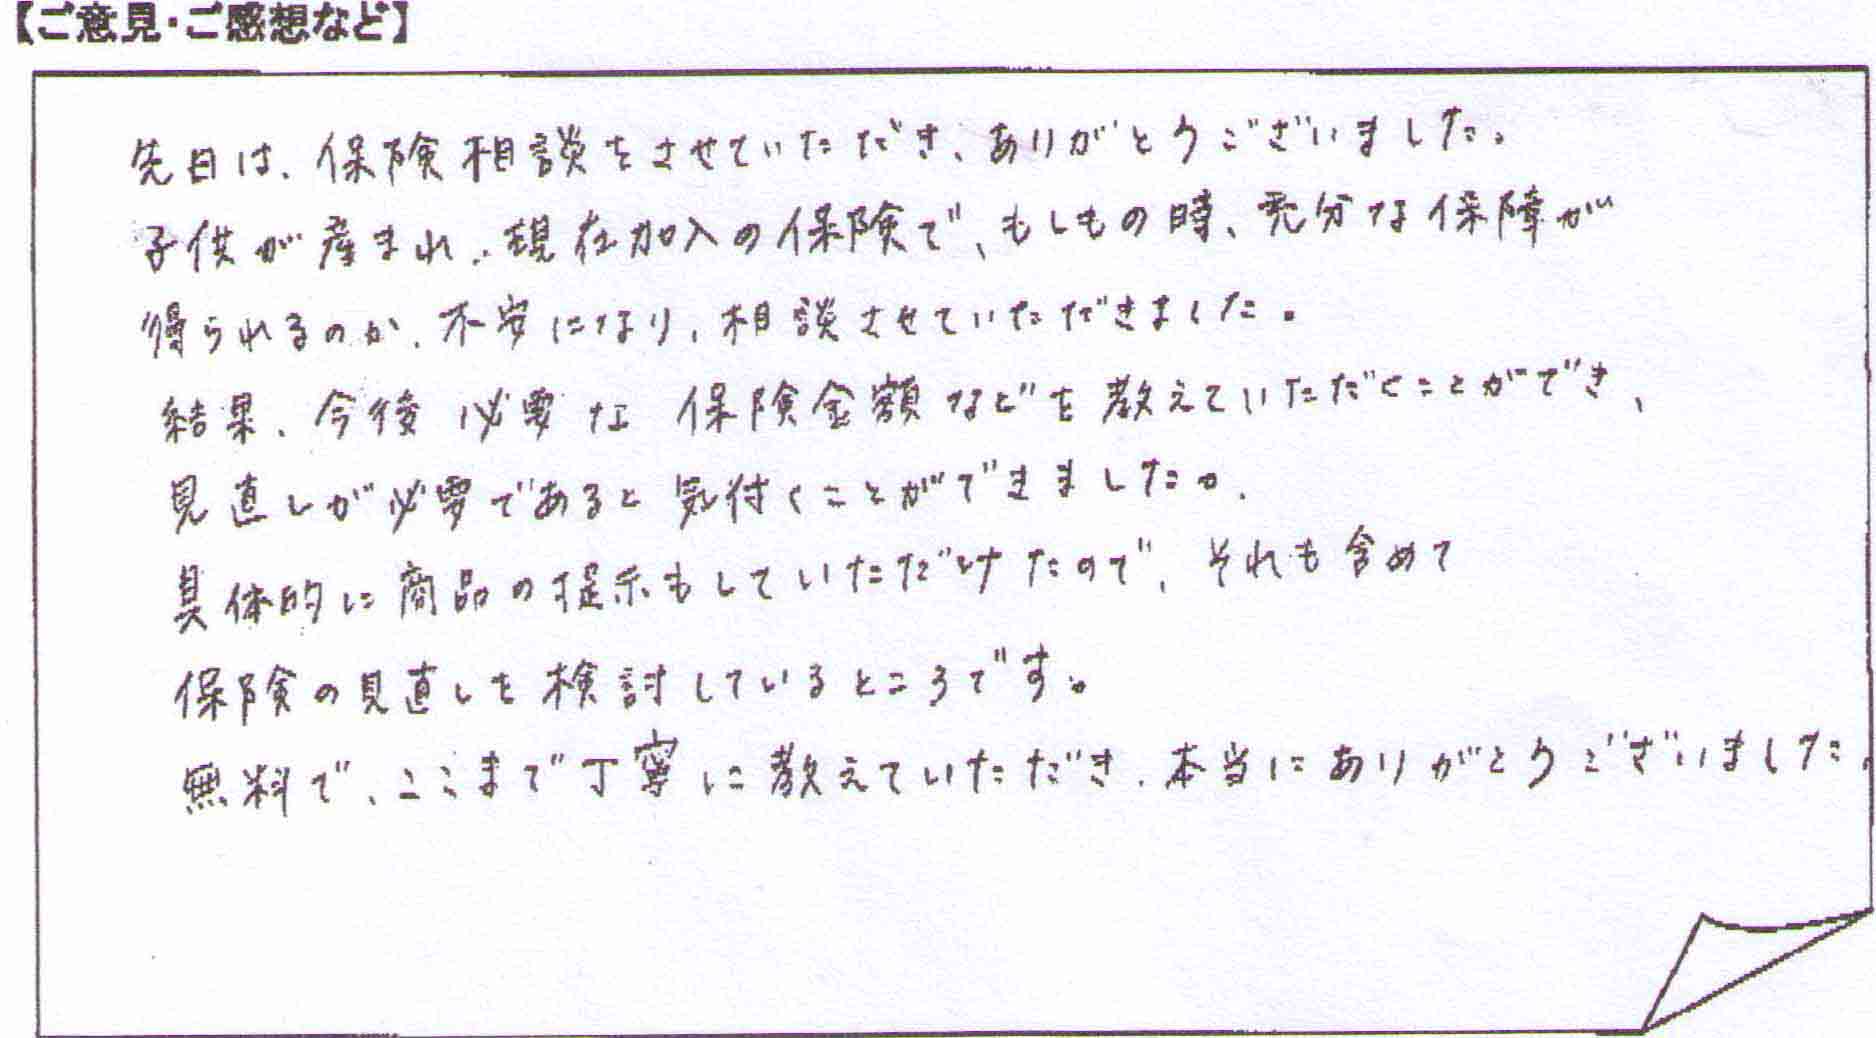 【ご意見・ご感想など】
先日は、保険相談をさせていただき、ありがとうございました。
子供が産まれ、現在加入の保険で、もしもの時、充分な保障が
得られるのか、不安になり、相談させていただきました。
結果、今後必要な保険金額などを教えていただくことができ、
見直しが必要であると気付くことができました。
具体的に商品の提示もしていただけたので、それも含めて
保険の見直しを検討しているところです。
無料で、ここまで丁寧に教えていただき、本当にありがとうございました。